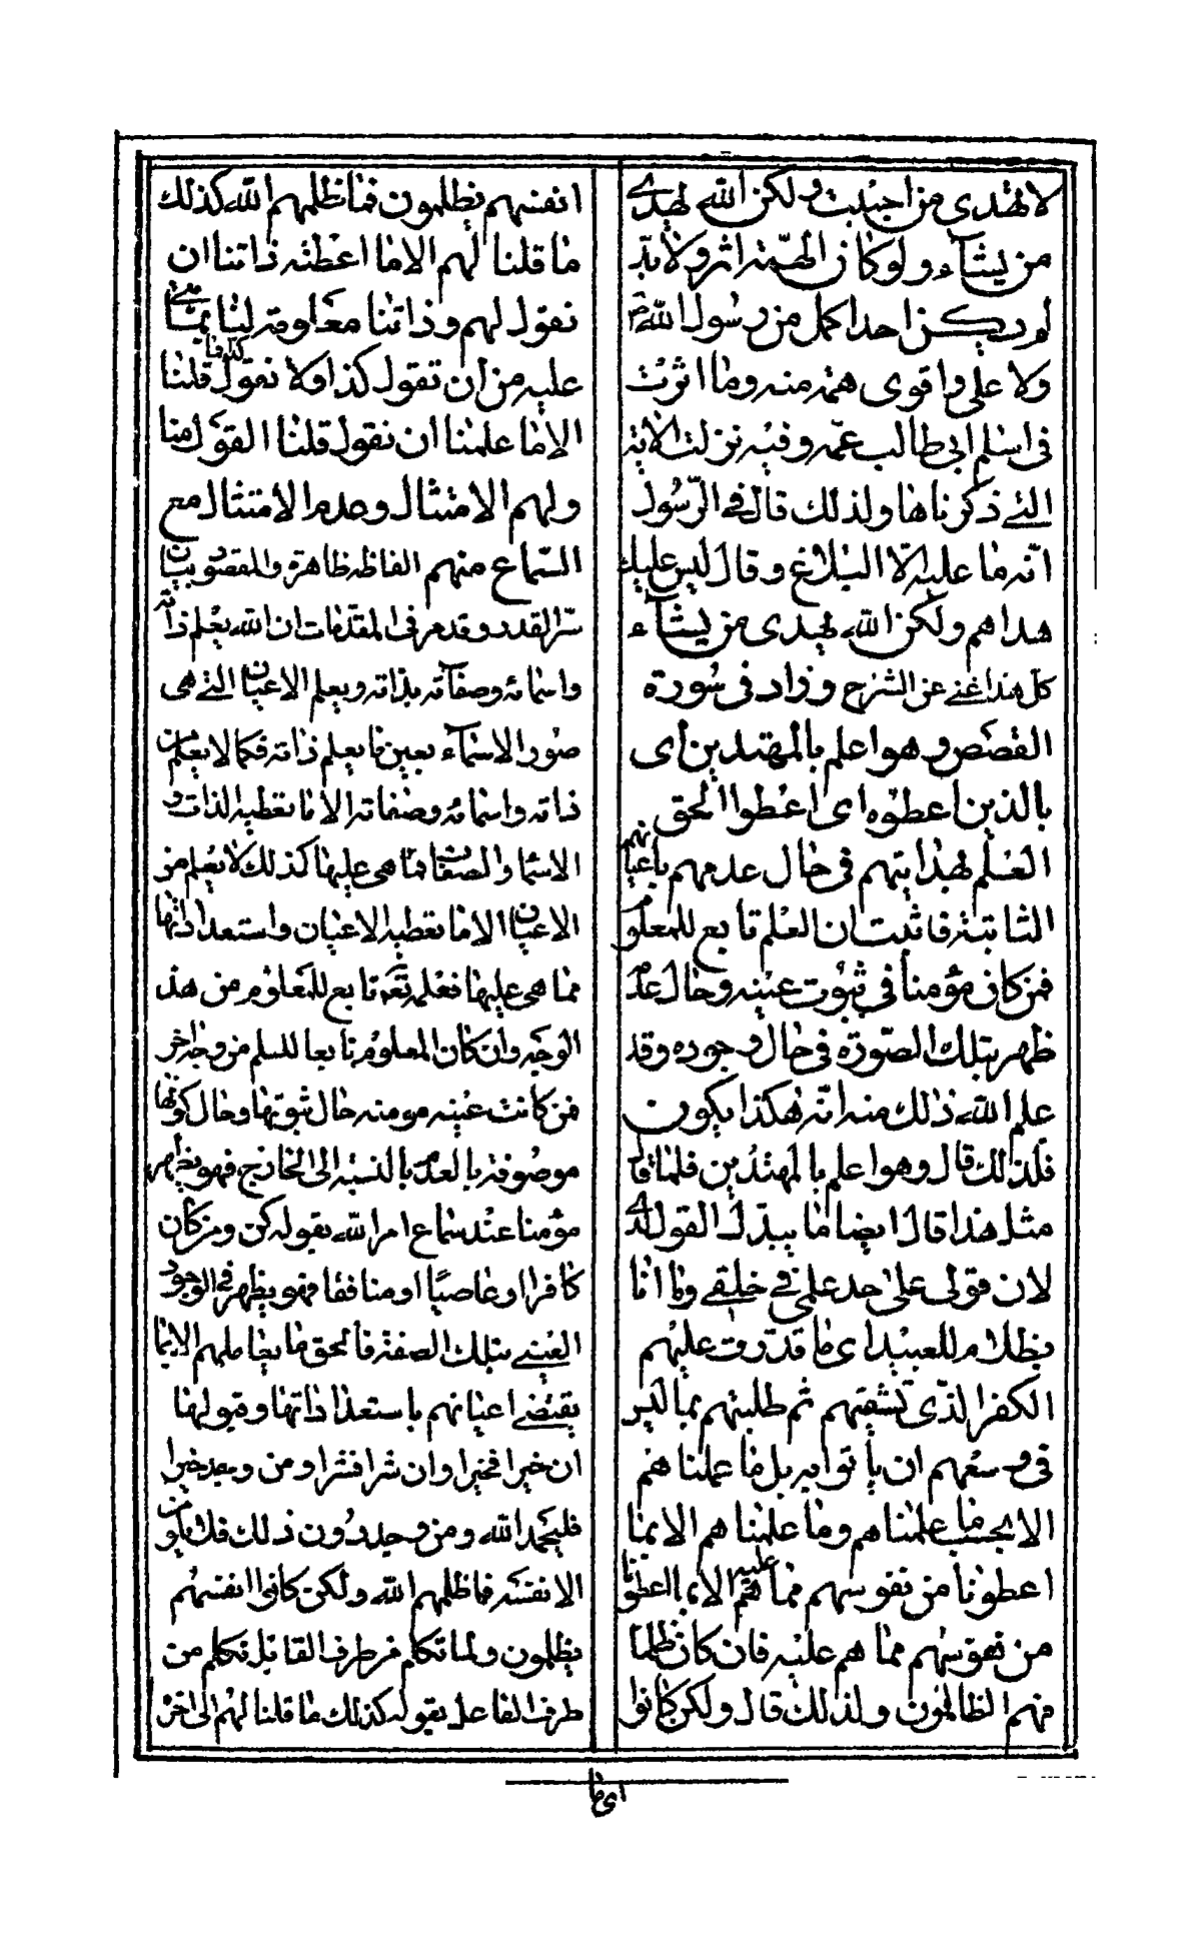 لا تهدى من احببت ولكن الله يهدى
من يشآء ولو كان الهمّة اثر ولا بدّ
لم يكن احدا كمل من رسول الله ص
ولا على واقوى همة منه وما اثرت
فى اسلم ابى طالب عمّه وفيه نزلت الاية
التى ذكرناها ولذلك قال فى الرّسول
انّه ما عليه الّا البلاغ وقال ليس عليك
هداهم ولكن الله يهدى من يشآء
كل هذا غنى عن الشرح وزاد فى سُورة
القصص وهو اعلم بالمهتدين اى
بالذين اعطوه اى اعطوا الحق
العلم بهدايتهم فى حال عدمهم باعيانهم
الثابتة فاثبت ان العلم تابع للمعلوم
فمن كان مؤمنا فى ثبوت عينه وحال عدمه
ظهر بتلك الصّورة فى حال وجوده وقد
علم الله ذلك منه انّه هكذا يكون
فلذلك قال وهو اعلم بالمهتدين فلما قال
مثل هذا قال ايضا ما يبدّل القول لدى
لان قولى على حد علمى فى خلقى وما انا
بظلام للعبيد اى ما قدّرت عليهم
الكفر الذى يشقيهم ثم طلبتهم بما ليس
فى وسعهم ان ياتوا به بل ما عملنا هم
الا بحسب ما علمناهم وما علمنا هم الا بما
اعطونا من نفوسهم مما هم عليه
من نفوسهم مما هم عليه فان كان ظلما
فهم الظالمون ولذلك قال ولكن كانوا
انفسهم يظلمون فما ظلمهم الله كذلك
ما قلنا لهم الا ما اعطته ذاتنا ان
نقول لهم وذاتنا معلومة لنا بما هى
عليه من ان نقول كذا ولا نقول كذا فما قلنا
الا ما علمنا ان نقول قلنا القول منا
ولهم الامتثال وعدم الامتثال مع
السّماع منهم الفاظه ظاهرة والمقصود بيان
سّر القدر وقد مر فى المقدمات ان الله يعلم ذاته
واسمائه وصفاته بذاته ويعلم الاعيان التى هى
صور الاسمآء بعين ما يعلم ذاته فكما لا يعلم من
ذاته واسمائه وصفاته الا ما تعطيه الذات و
الاسما والصفات مما هى عليها كذلك لا يعلم من
الاعيان الا ما تعطيه الاعيان واستعداداتها
مما هى عليها فعلمه تعم تابع للمعلوم من هذ
الوجه وان كان المعلوم تابعا للعلم من وجه اخر
فمن كانت عينه مومنه حال ثبوتها وحال كونها
موصوفة بالعدم بالنسبة الى الخارج فهو يظهر
مؤمنا عند سماع امر الله بقوله كن ومن كان
كافرا او عاصيا او منافقا فهو يظهر فى الوجود
العينى بتلك الصفة فالحق ما يعاملهم الا بما
يقتضى اعيانهم باستعداداتها وقبولها
ان خيرا فخيرا وان شرا فشرا ومن وجد خيرا
فليحمد الله ومن وجد دون ذلك فلا يلومن
الا نفسه فما ظلمهم الله ولكن كانوا انفسهم
يظلمون ولما تكلم من طرف القابل تكلم من
طرف الفاعل بقوله كذلك ما قلنا لهم الى اخره
اى ما